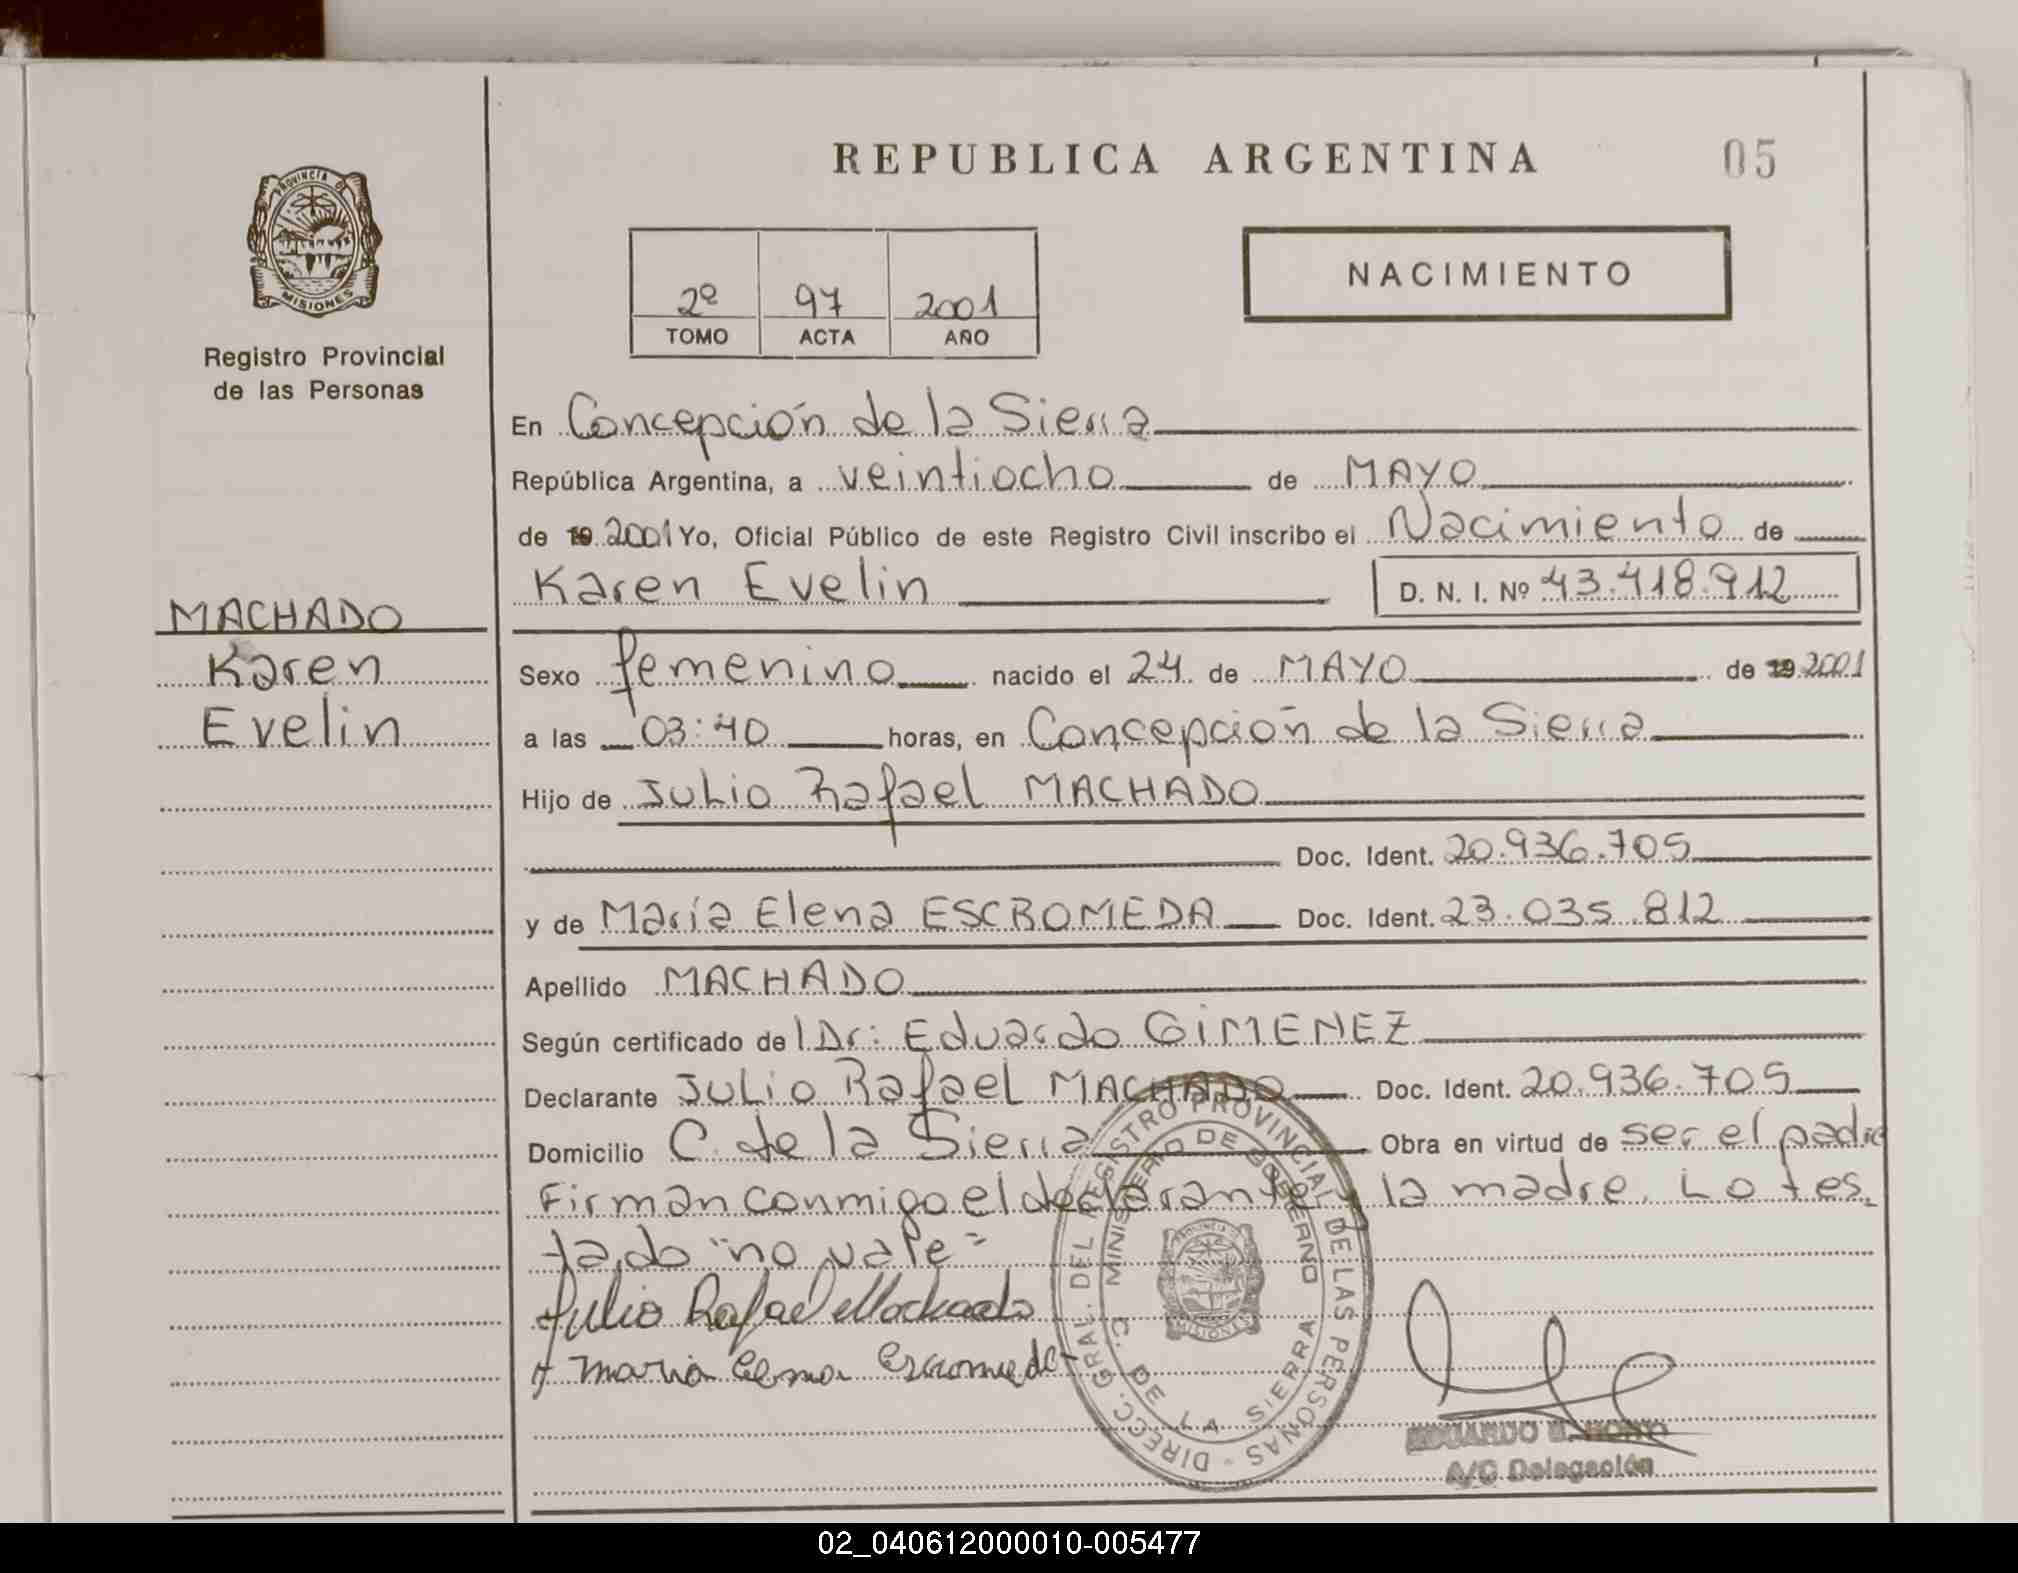 REPUBLICA ARGENTINA
05
PROVINCIA DE
MISIONES
Registro Provincial
de las Personas
2º 97 2001
TOMO ACTA AÑO
NACIMIENTO
En Concepción de la Sierra
República Argentina, a veintiocho de MAYO
de 19 2001 Yo, Oficial Público de este Registro Civil inscribo el Nacimiento de
Karen Evelin D. N. I. Nº 43.418.912
MACHADO
Karen
Evelin
Sexo femenino nacido el 24 de MAYO de 19 2001
a las 03:40 horas, en Concepción de la Sierra
Hijo de Julio Rafael MACHADO
Doc. Ident. 20.936.705
y de María Elena ESCROMEDA Doc. Ident. 23.035.812
Apellido MACHADO
Según certificado de l Dr: Eduardo GIMENEZ
Declarante Julio Rafael MACHADO Doc. Ident. 20.936.705
Domicilio C. de la Sierra Obra en virtud de ser el padre
Firman conmigo el declarante y la madre. Lo tes-
tado "no vale"
Julio Rafael Machado
Maria Elena Escromeda
DIREC. GRAL. DEL REGISTRO PROVINCIAL DE LAS PERSONAS -
MINISTERIO DE GOBIERNO
C. DE LA SIERRA
PROVINCIA
MISIONES
EDUARDO
A/C Delegación
02_040612000010-005477